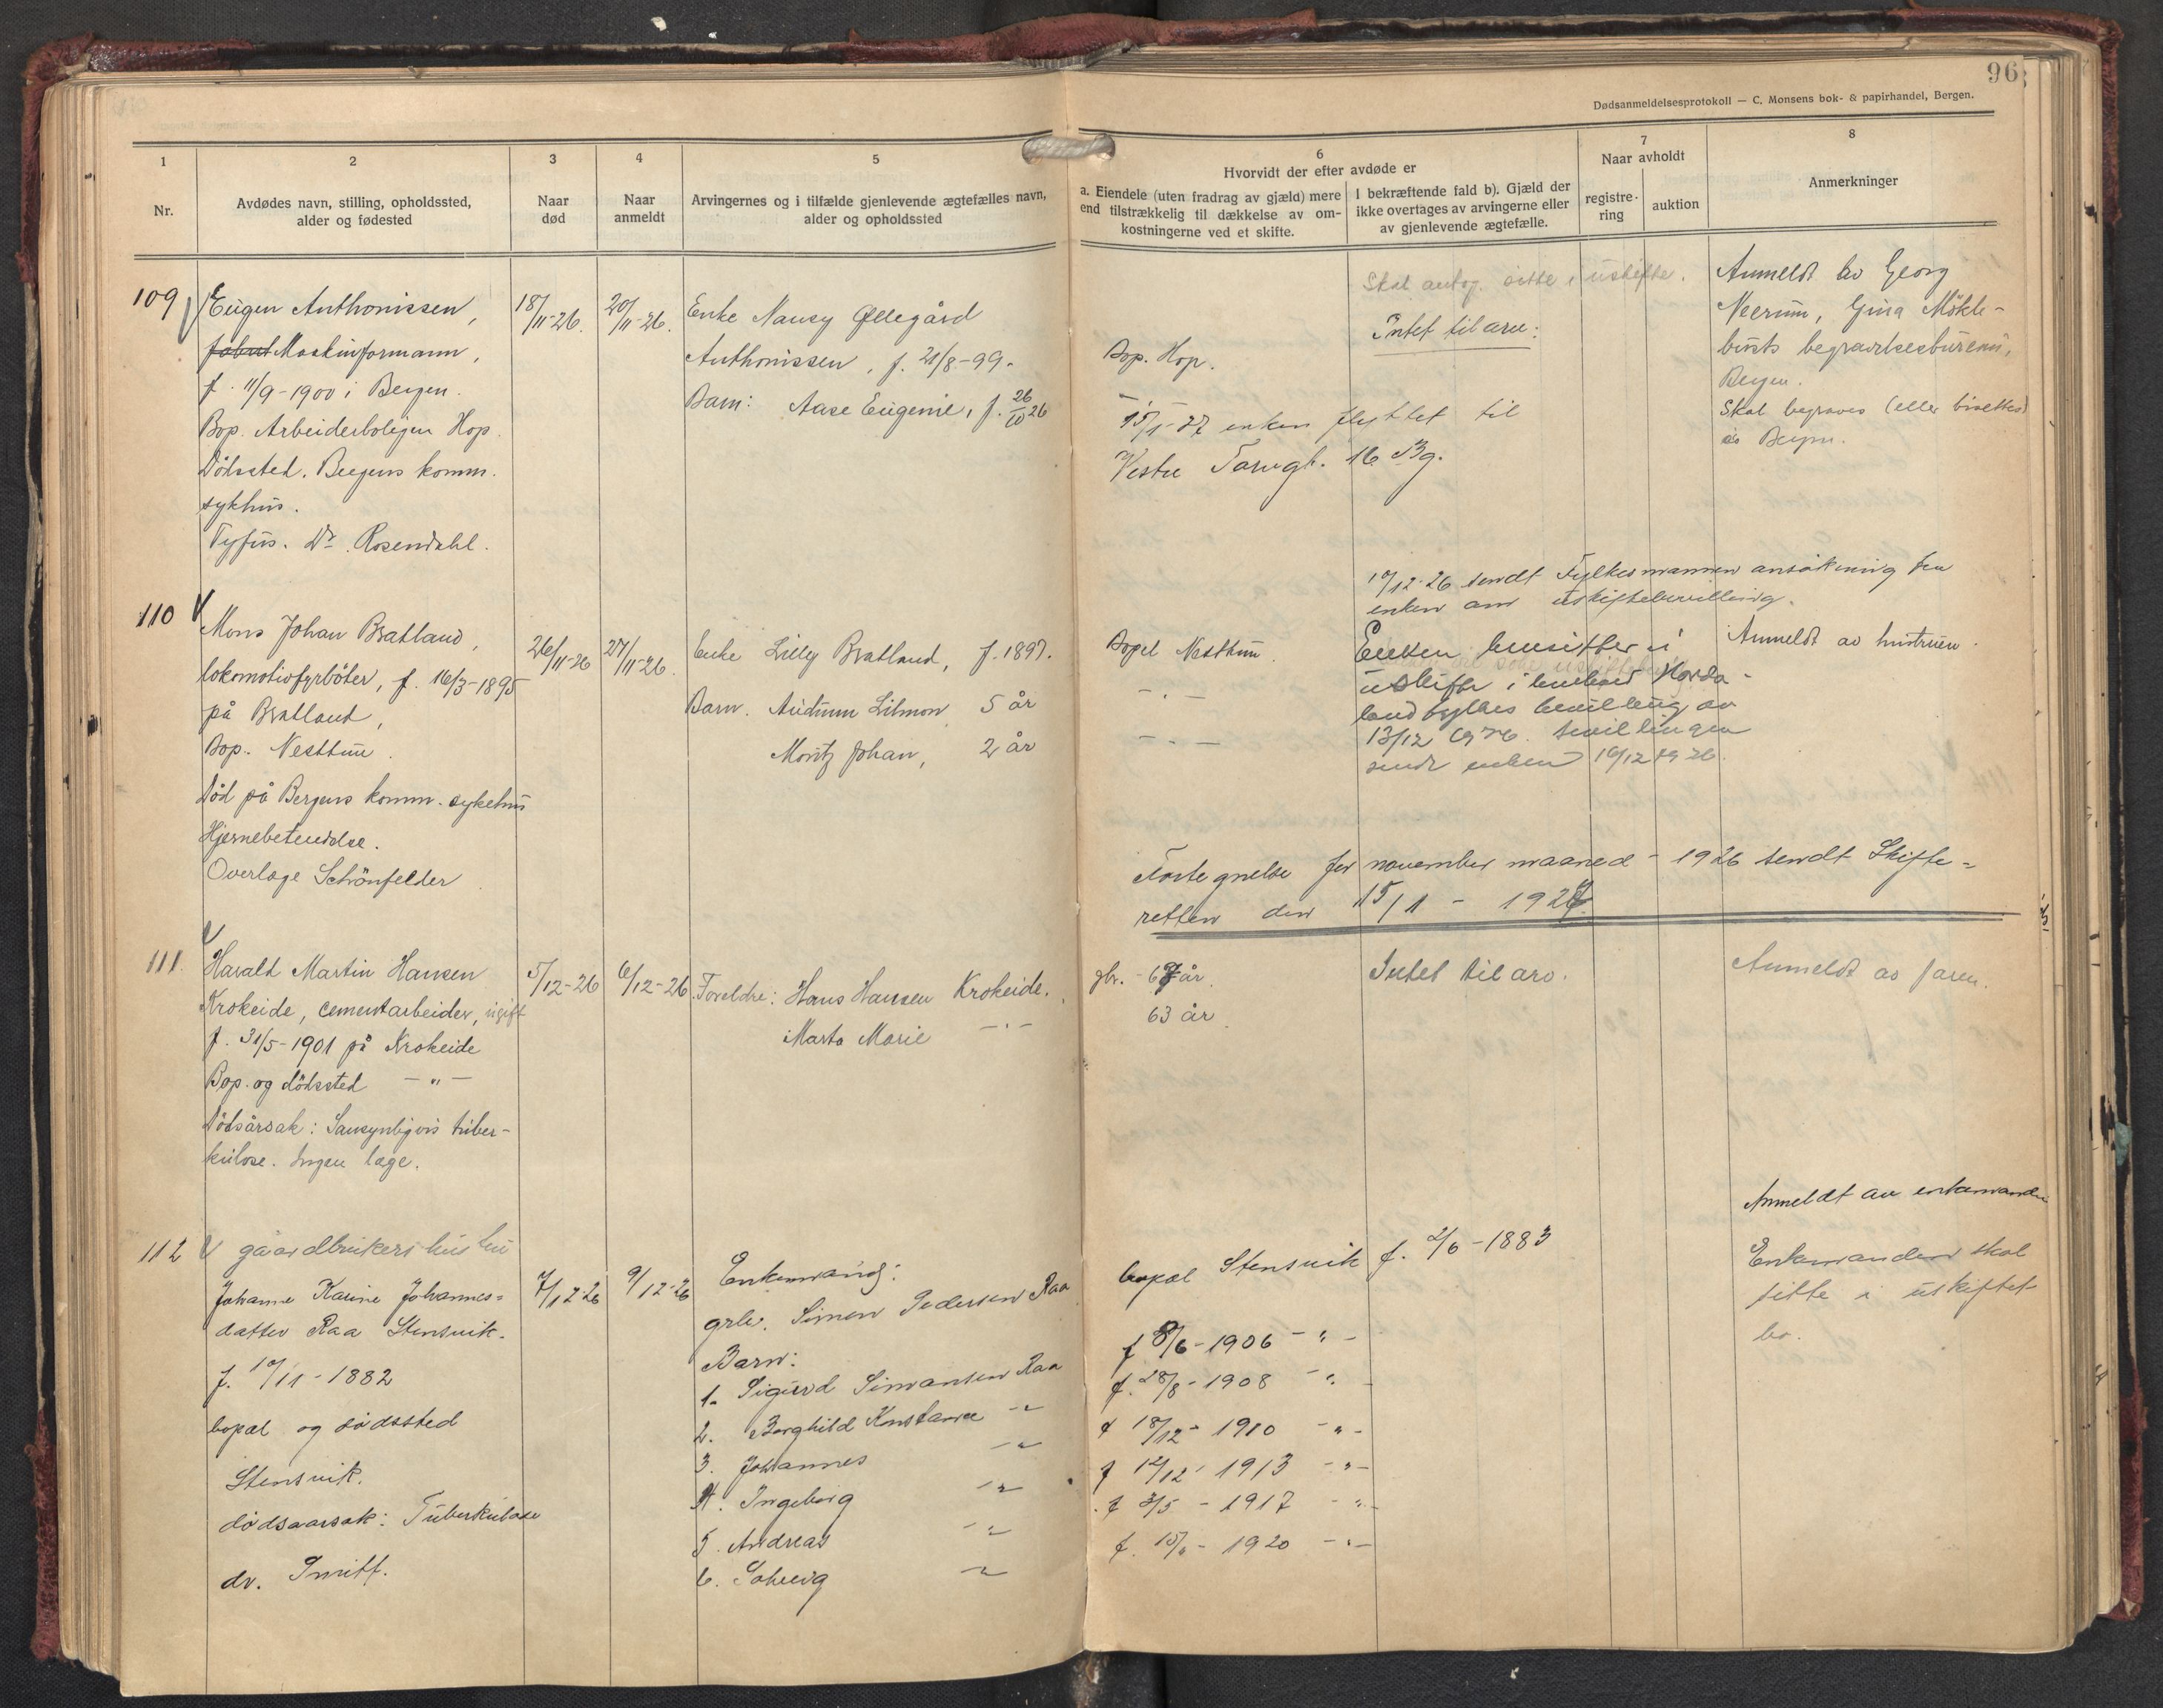 96
Dødsanmeldelsesprotokoll — C. Monsens bok- & papirhandel, Bergen.
1
Nr.
2
Avdødes navn, stilling, opholdssted,
alder og fødested
3
Naar
død
4
Naar
anmeldt
5
Arvingernes og i tilfælde gjenlevende ægtefælles navn,
alder og opholdssted
6
Hvorvidt der efter avdøde er
a. Eiendele (uten fradrag av gjæld) mere
end tilstrækkelig til dækkelse av om-
kostningerne ved et skifte.
I bekræftende fald b). Gjæld der
ikke overtages av arvingerne eller
av gjenlevende ægtefælle.
7
Naar avholdt
registre-
ring
auktion
8
Anmerkninger
109
Eugen Anthonissen,
Maskinformann,
f. 11/9-1900 i Bergen.
Bop. Arbeiderboligen Hop.
Dödssted. Bergens komm.
sykhus.
Tyfus. Dr. Rosendahl.
18/11-26.
20/11-26.
Enke Nancy Øllegård
Anthonissen, f. 21/8-99.
Barn: Aase Eugenie, f. 26/10 26
Bop. Hop.
15/1-27 enken flyttet til
Vestre Torvgt. 16 Bg.
Skal antag. sitte i uskifte.
Intet til arv.
Anmeldt av Georg
Neerum, Gina Mökle-
busts begravelsesbureau,
Bergen.
Skal begraves (eller bisettes)
i Bergen.
110
Mons Johan Bratland,
lokomotivfyrböter, f. 16/3-1895
på Bratland,
Bop. Nesttun.
Död på Bergens komm. sykehus
Hjernebetendelse.
Overlæge Schönfelder
26/11-26
27/11-26.
Enke Lilly Bratland, f. 1897.
Barn. Audunn Lilmon 5 år
Moritz Johan, 2 år
Bopel Nesttun.
— " —
— " —
10/12-26 sendt Fylkesmannen ansökning fra
enken om uskiftebevilling.
Enken hensitter i
uskifte i henhold Horda-
land fylkes bevilling av
13/12 1926. bevillingen
sendt enken 16/12 1926.
Anmeldt av hustruen.
Fortegnelse for november maaned - 1926 sendt Skifte=
retten den 15/1 - 1927.
111.
Harald Martin Hansen
Krokeide, cementarbeider, ugift
f. 31/5-1901 på Krokeide
Bop. og dödssted — " —
Dödsårsak: Sansynligvis tuber-
kulose. Ingen læge.
5/12-26
6/12-26.
Foreldre: Hans Hansen Krokeide.
Marta Marie — " —
gbr. - 67 år.
63 år.
Intet til arv.
Anmeldt av faren.
112
gaardbrukers hustru
Johanne Karine Johannes=
datter Raa Stensvik.
f. 10/11 - 1882
bopæl og dödssted
Stensvik.
dödsaarsak: Tuberkulose
dr. Smitt.
7/12-26
9/12-26
Enkemand:
grbr. Simon Pedersen Raa
Barn:
1. Sigurd Simonsen Raa
2. Borghild Konstanse — " —
3. Johannes — " —
4. Ingeborg — " —
5. Andreas — " —
6. Solveig — " —
bopæl Stensvik f. 2/6-1883
f 8/6-1906 - " -
f. 28/8-1908 - " -
f 18/12-1910 - " -
f 12/12-1913 - " -
f 3/5-1917 - " -
f. 15/ - 1920 - " -
Anmeldt av enkemanden
Enkemanden skal
sitte i uskiftet
bo.